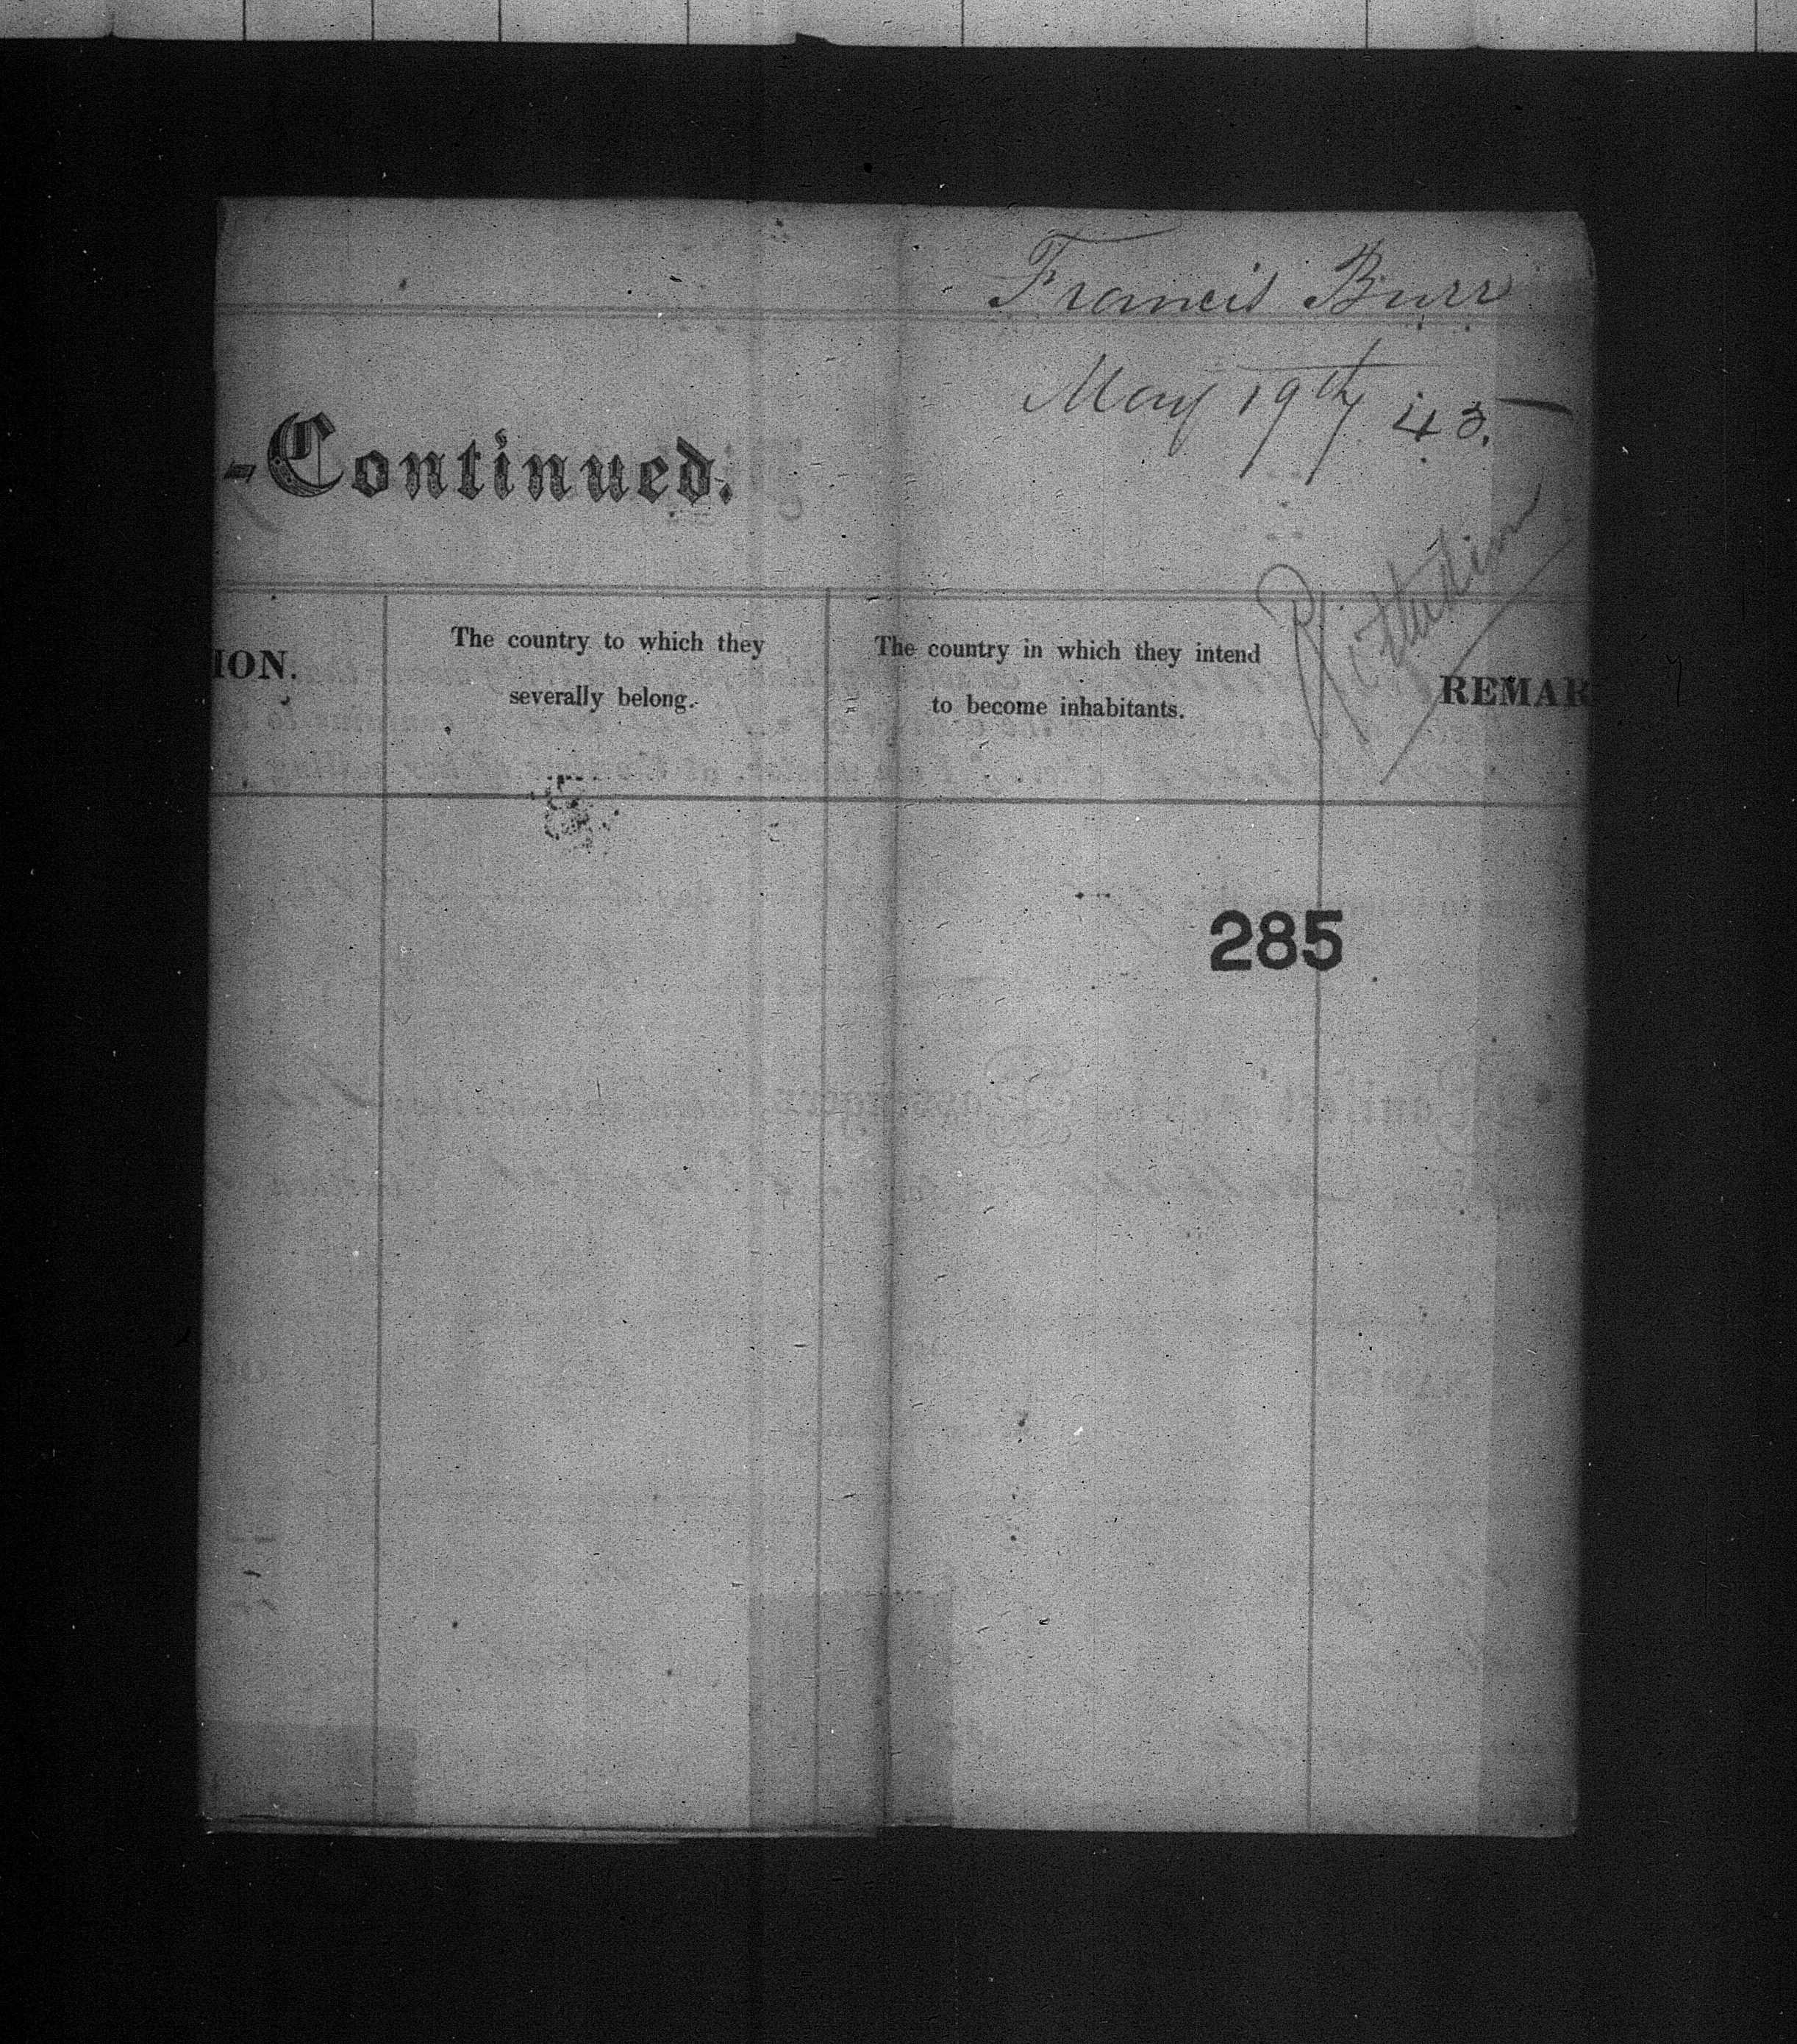 Francis Burr
May 19th 43.
-Continued.
ION.
The country to which they
severally belong.
The country in which they intend
to become inhabitants.
REMAR
285